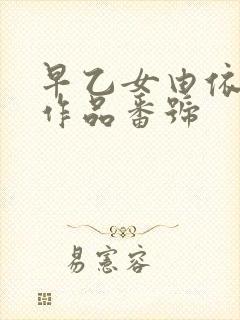 早乙女由依
作品番號
易憲容